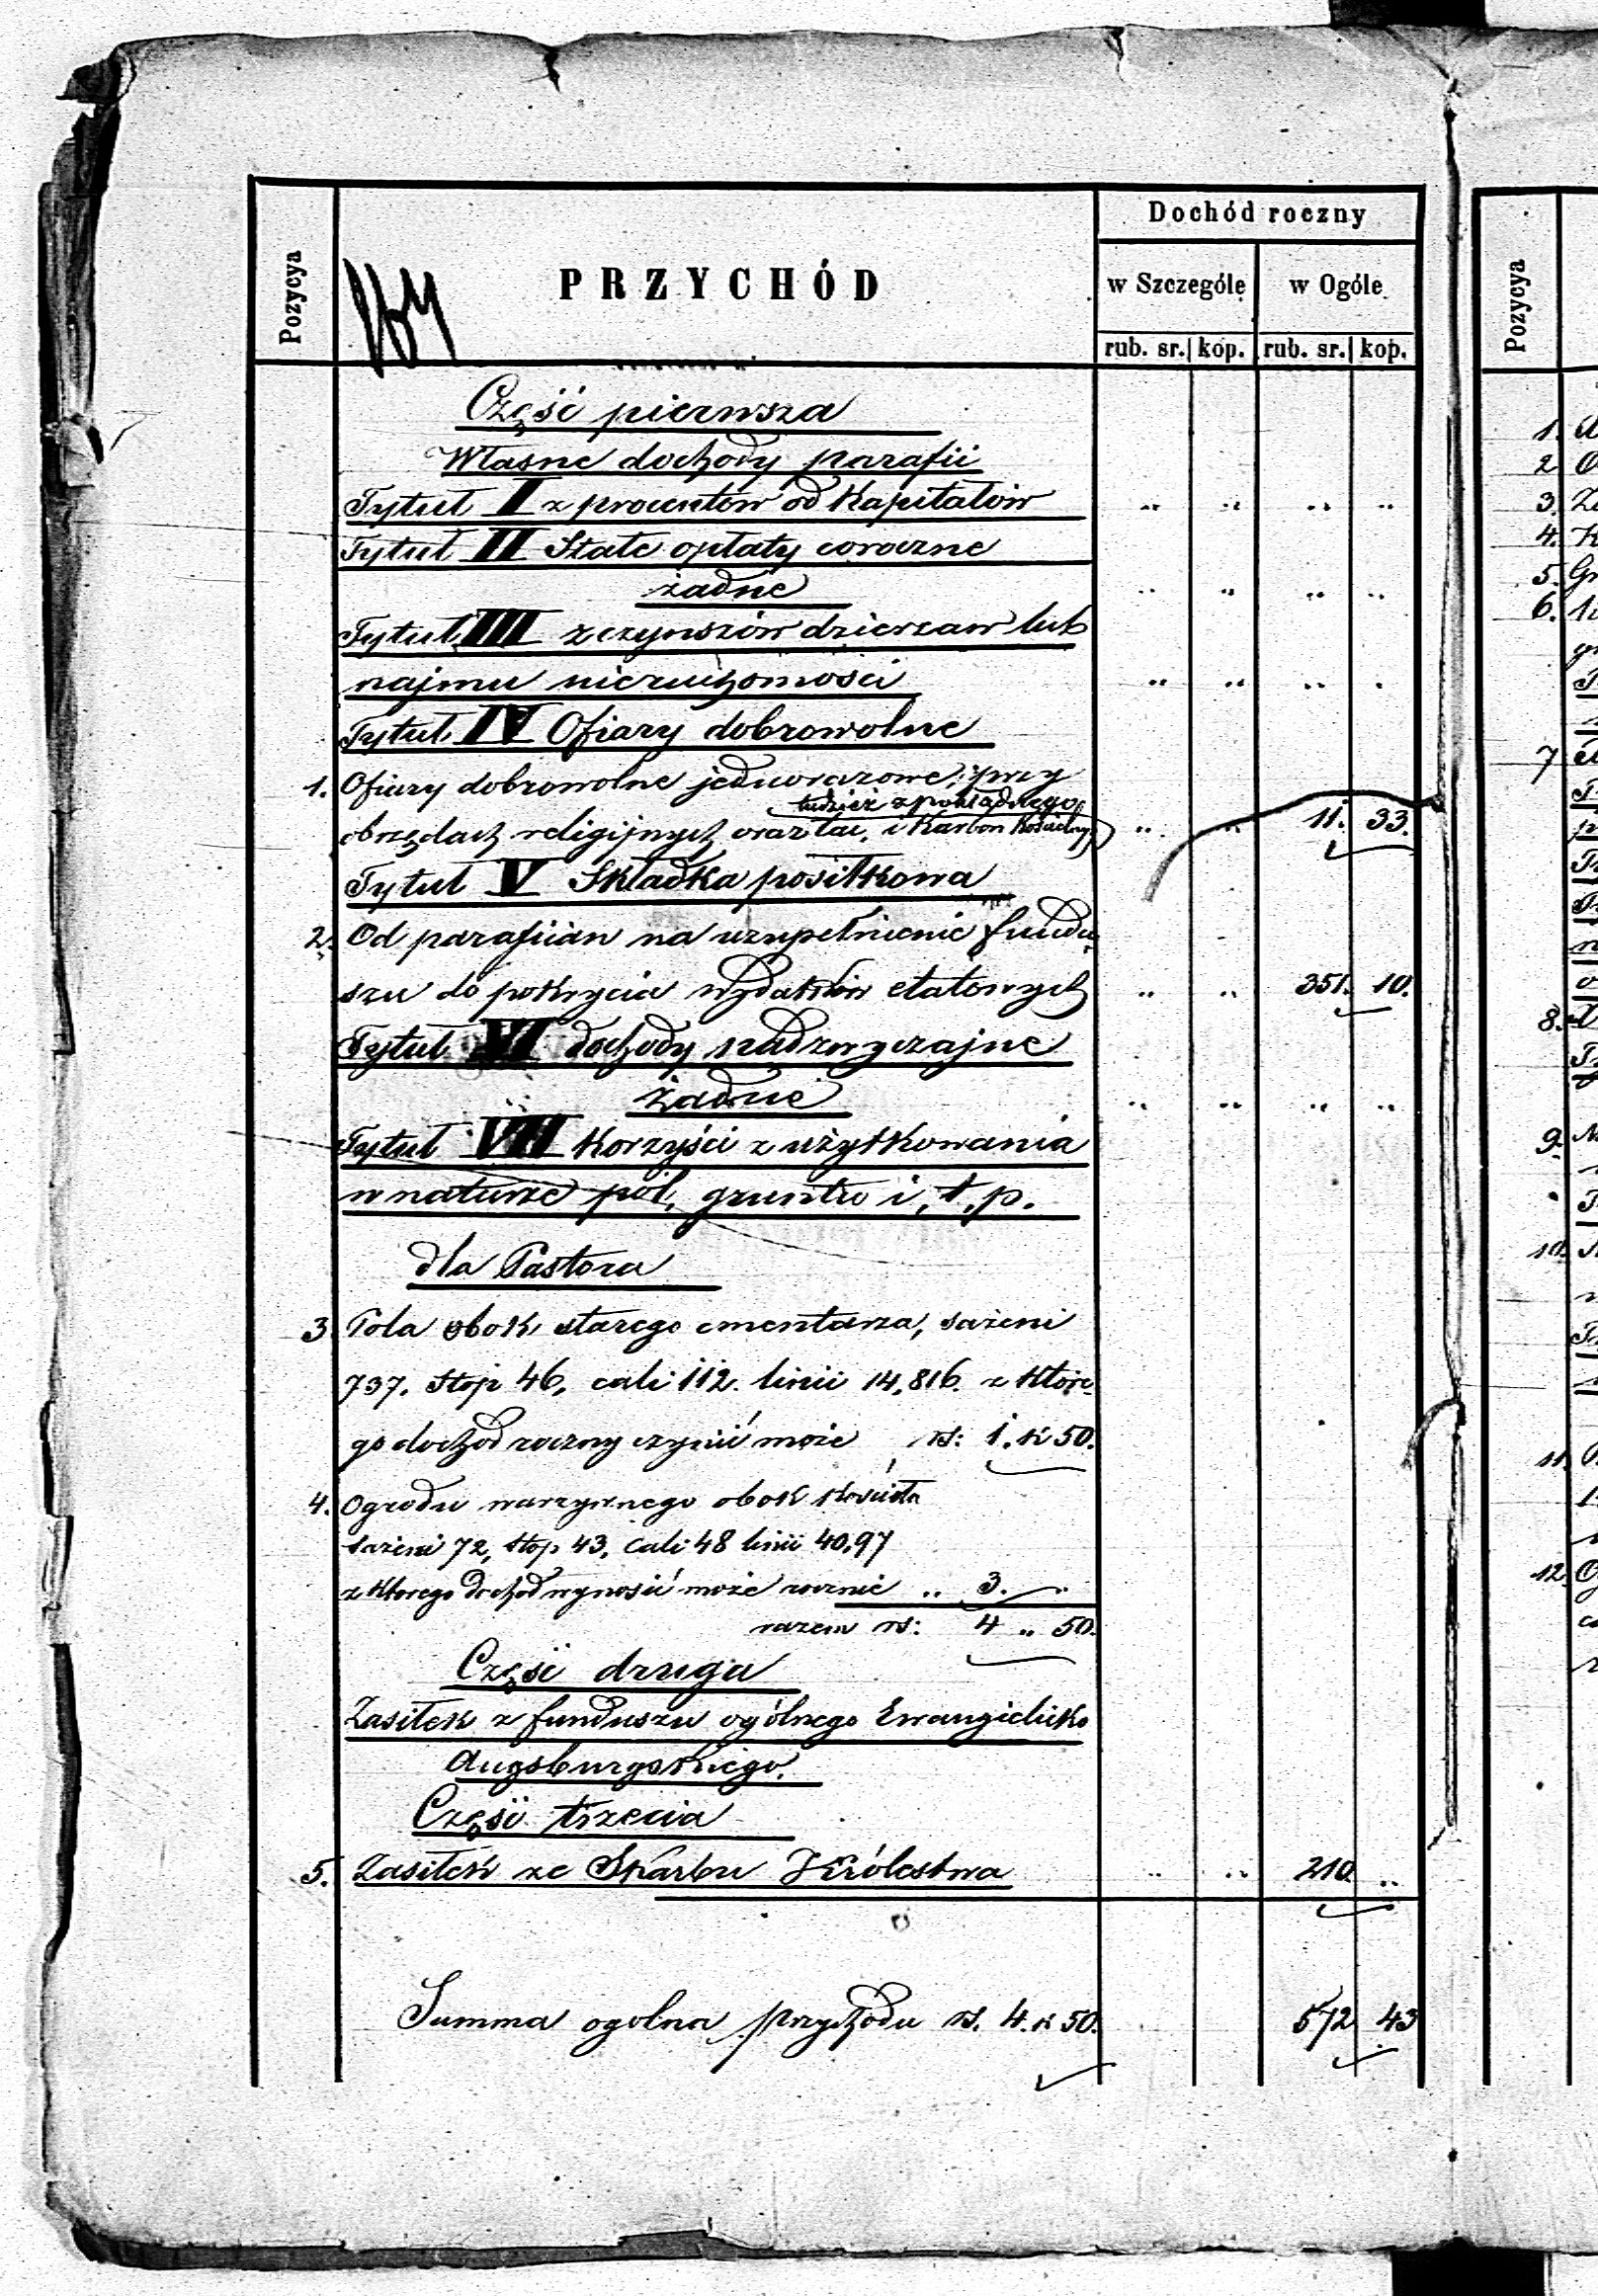 Dochód roczny
Pozycya
PRZYCHÓD
w Szczególe
w Ogóle
rub. sr. kop. rub. sr. kop.
Część pierwsza
Własne dochody parafii
Tytuł I z procentów od Kapitałów " " " "
Tytuł II Stałe opłaty coroczne
żadne " " " "
Tytuł III z czynszów dzierżaw lub
najmu nieruchomości " " " "
Tytuł IV Ofiary dobrowolne
1. Ofiary dobrowolne jednorazowe, przy
tudzież z pokładnego
obrzędach religijnych oraz tac, i Karbon Kościelny " " 11. 33.
Tytuł V Składka posiłkowa
2. Od parafian na uzupełnienie fundu-
szu do pokrycia wydatków etatowych " " 351. 10.
Tytuł VI dochody nadzwyczajne
żadne " " " "
Tytuł VII Korzyści z użytkowania
w naturze pól, gruntu i, t, p.
dla Pastora
3. Pola obok starego cmentarza, sażeni
737. stóp 46, cali 112. linii 14,816. z które-
go dochód roczny czynić może rs: 1. k 50.
4. Ogrodu warzywnego obok Kościoła
sażeni 72, stóp 43, cali 48 linii 40,97
z którego dochód wynosić może rocznie " 3. "
razem rs: 4 " 50.
Część druga
Zasiłek z funduszu ogólnego Ewangielicko
Augsburgskiego.
Część trzecia
5. Zasiłek ze Skarbu Królestwa " " 210 "
Summa ogolna przychodu rs. 4. k 50. 572 43
Pozycya
1.
2
3.
4.
5.
6.
7
8.
9.
10.
11.
12.